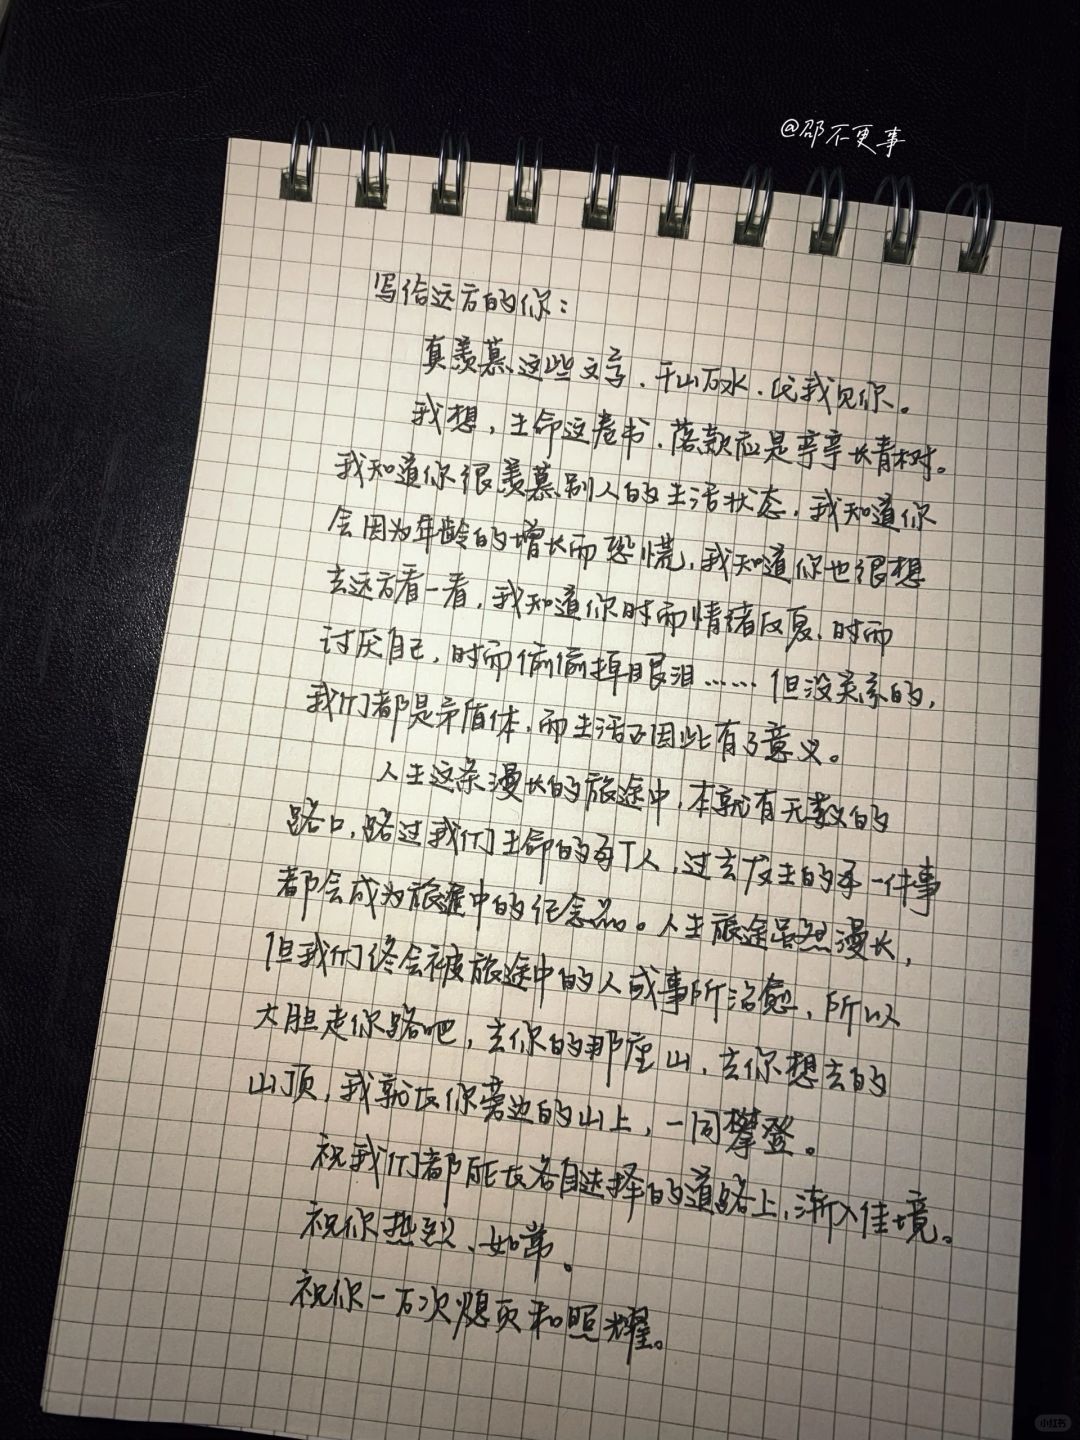 @邵不更事
写给远方的你：
真羡慕这些文字，千山万水，比我见你。
我想，生命这卷书，落款应是亭亭长青树。
我知道你很羡慕别人的生活状态，我知道你
会因为年龄的增长而恐慌，我知道你也很想
去远方看一看，我知道你时而情绪反复，时而
讨厌自己，时而偷偷掉眼泪……但没关系的，
我们都是矛盾体，而生活正因此有了意义。
人生这条漫长的旅途中，本就有无数的
路口，路过我们生命的每个人，过去发生的每一件事
都会成为旅途中的纪念品。人生旅途虽然漫长，
但我们终会被旅途中的人或事所治愈，所以
大胆走你路吧，去你的那座山，去你想去的
山顶，我就在你旁边的山上，一同攀登。
祝我们都能在各自选择的道路上，渐入佳境。
祝你热烈、如常。
祝你一万次和照耀。
小红书